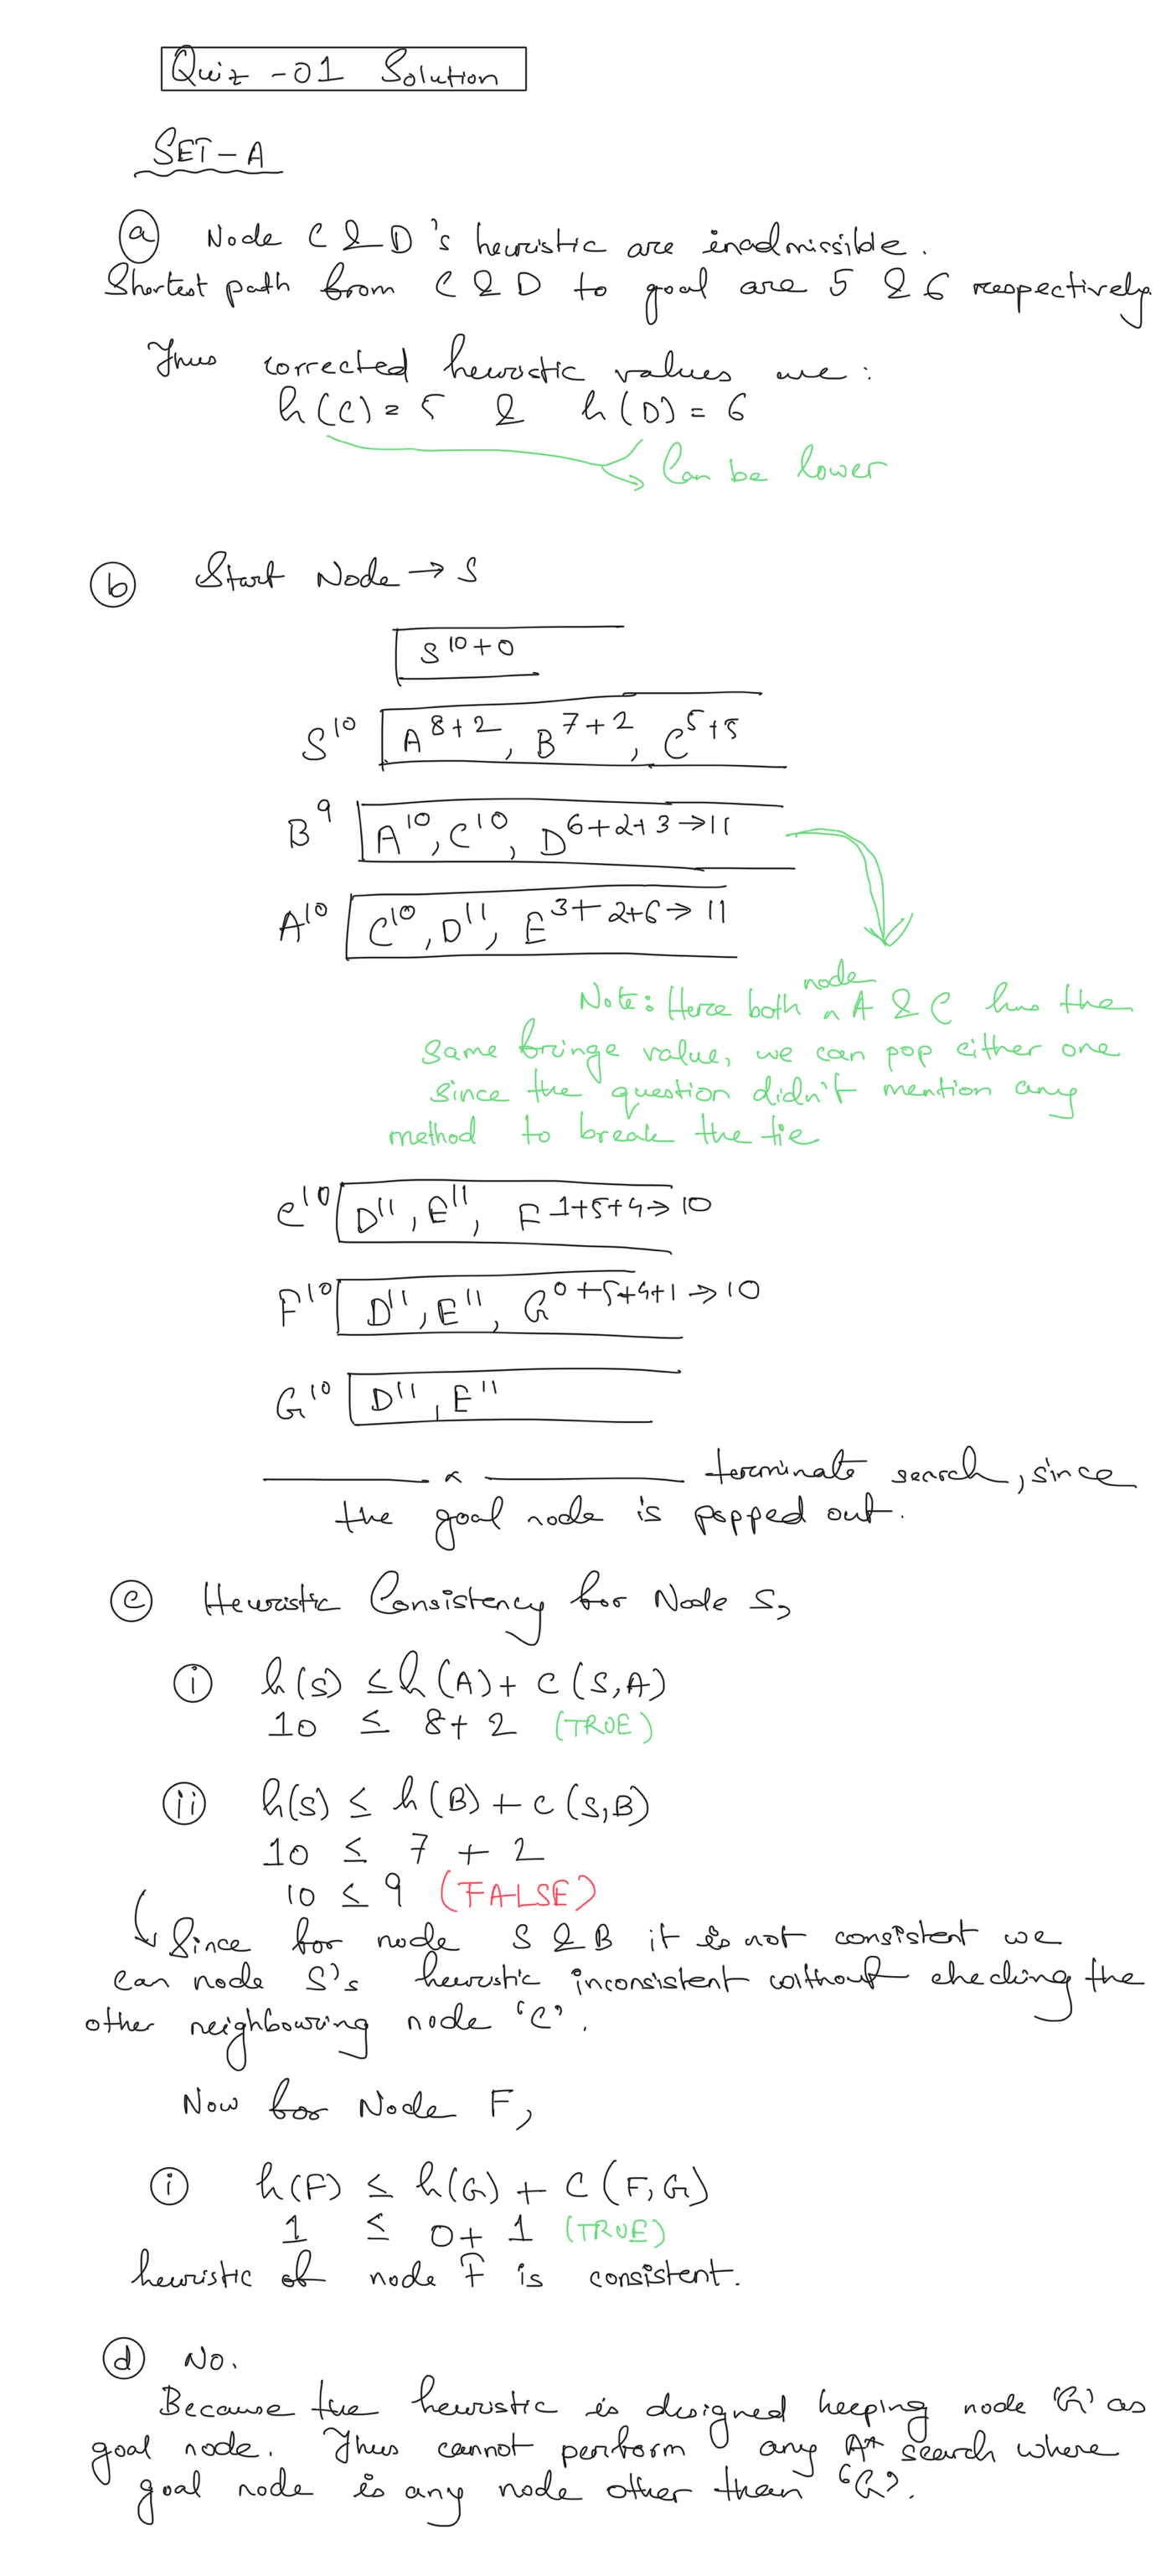 Quiz -01 Solution
SET-A
(a) Node C & D's heuristic are inadmissible.
Shortest path from C & D to goal are 5 & 6 respectively.
Thus corrected heuristic values are:
h(C) = 5 & h(D) = 6
Can be lower
(b) Start Node → S
S^10+0
S^10 A^8+2, B^7+2, C^5+5
B^9 A^10, C^10, D^6+2+3→11
A^10 C^10, D^11, E^3+2+6→11
node
Note: Here both ^ A & C has the
same fringe value, we can pop either one
since the question didn't mention any
method to break the tie
C^10 D^11, E^11, F^1+5+4→10
F^10 D^11, E^11, G^0+5+4+1→10
G^10 D^11, E^11
x terminate search, since
the goal node is popped out.
(c) Heuristic Consistency for Node S,
(i) h(S) ≤ h(A) + c(S,A)
10 ≤ 8+2 (TRUE)
(ii) h(S) ≤ h(B) + c(S,B)
10 ≤ 7 + 2
10 ≤ 9 (FALSE)
↳ Since for node S & B it is not consistent we
can node S's heuristic inconsistent without checking the
other neighbouring node 'C'.
Now for Node F,
(i) h(F) ≤ h(G) + C(F,G)
1 ≤ 0+1 (TRUE)
heuristic of node F is consistent.
(d) No.
Because the heuristic is designed keeping node 'G' as
goal node. Thus cannot perform any A* search where
goal node is any node other than 'G'.